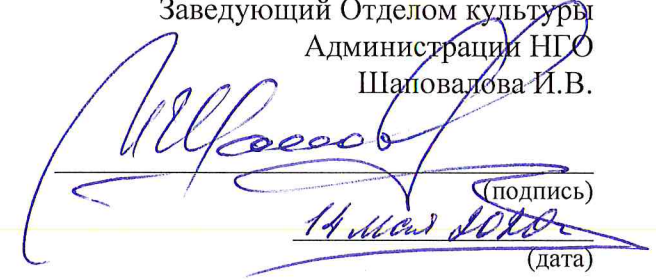 Заведующий Отделом культуры
Администрации НГО
Шаповалова И.В.
(подпись)
14 мая 2020г
(дата)